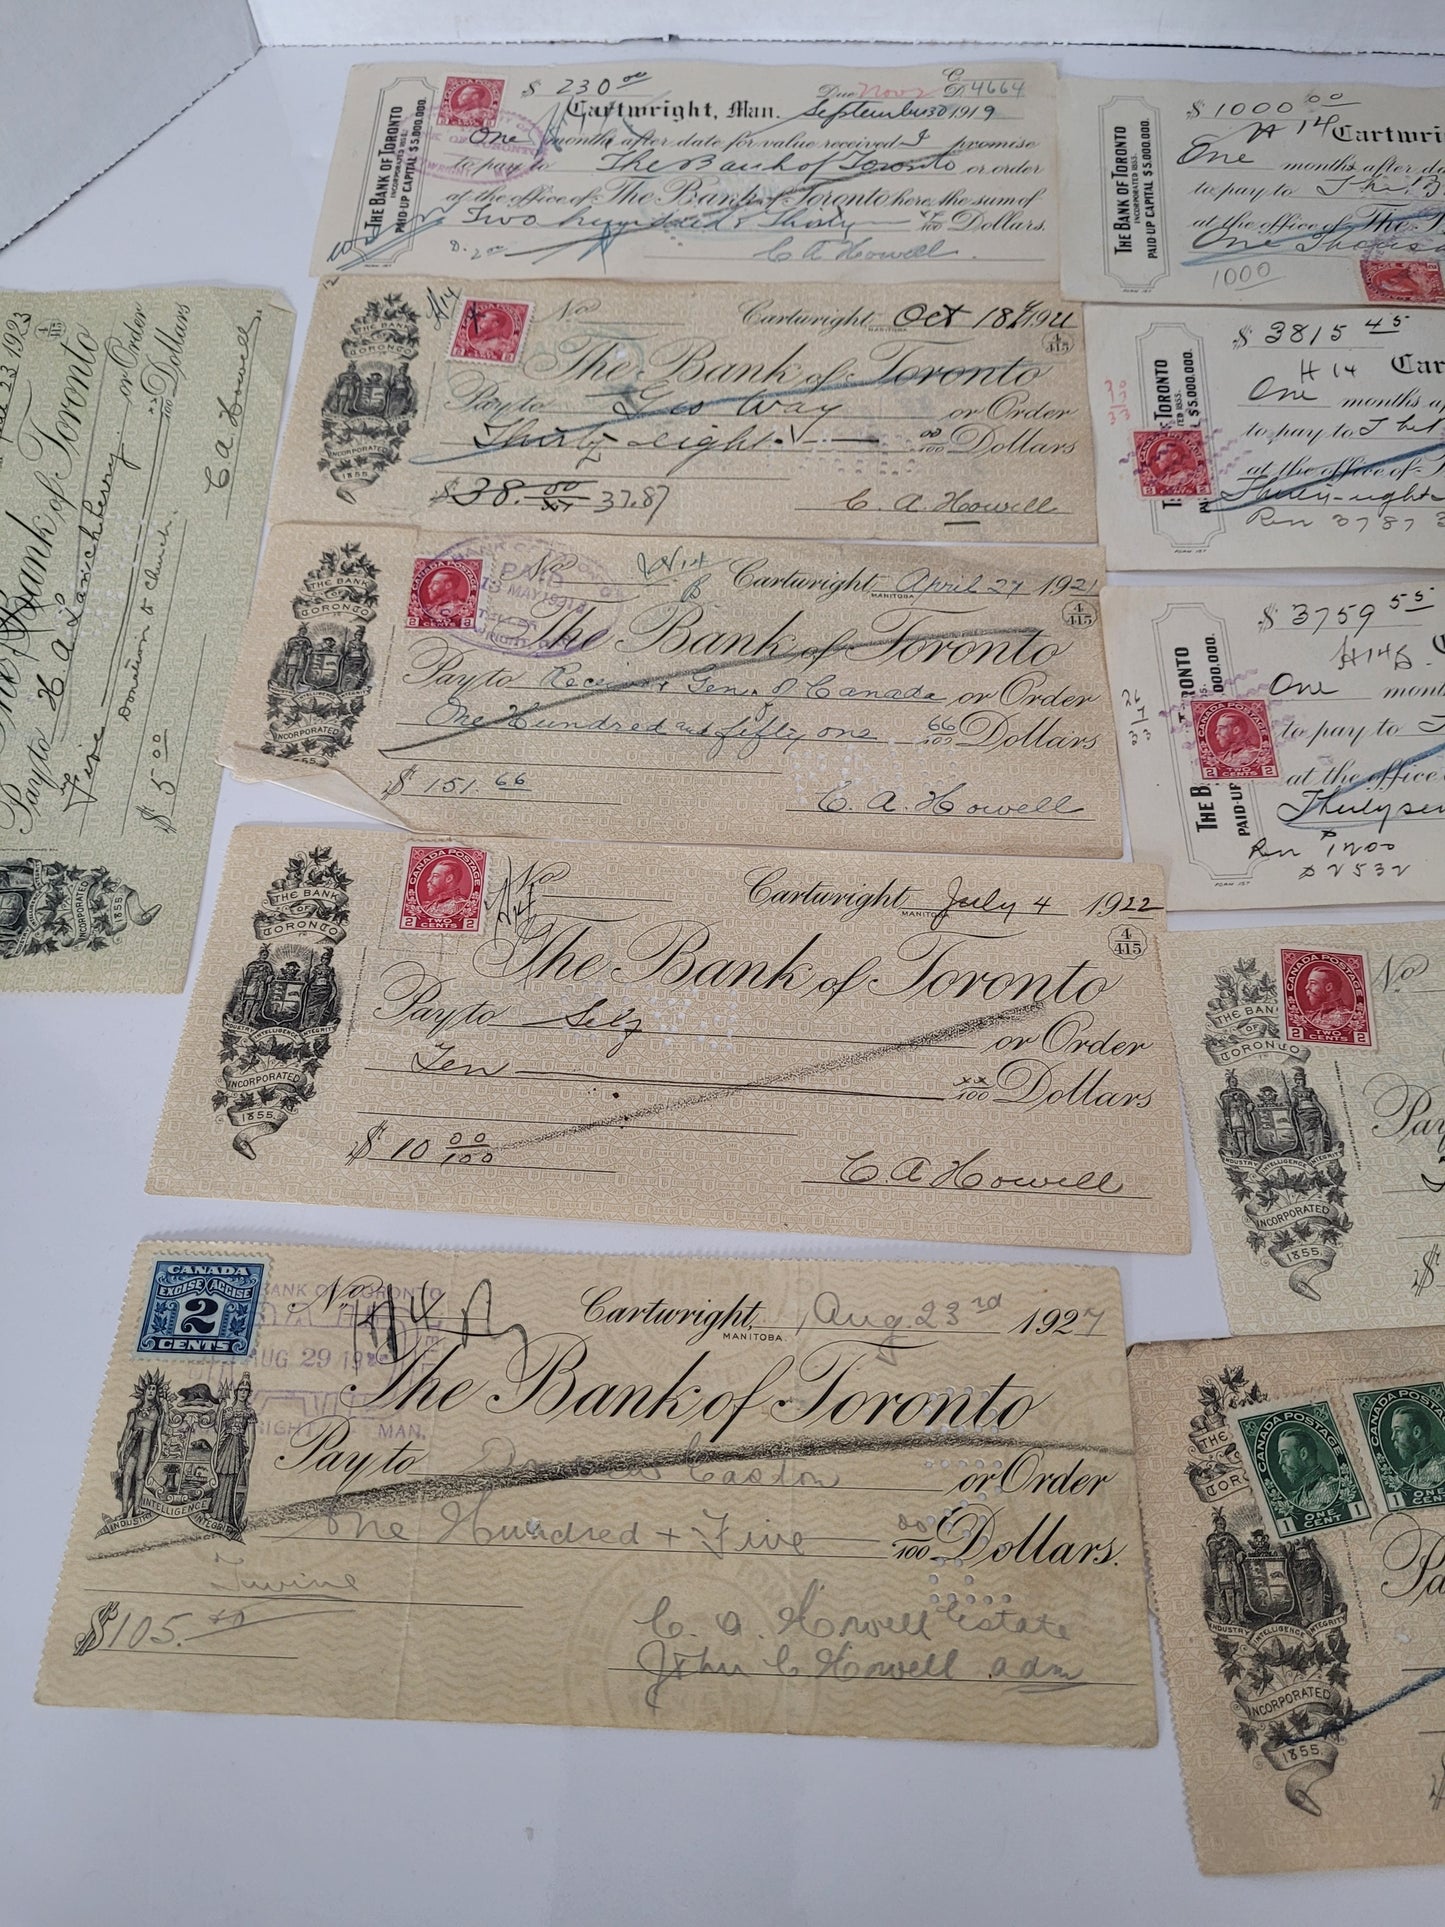 $ 230 00
C.
Due Nov 2 D. 4664
THE BANK OF TORONTO
INCORPORATED 1855.
PAID-UP CAPITAL $5,000,000.
Cartwright, Man. September 30 1919
One months after date for value received I promise
to pay to The Bank of Toronto or order
at the office of The Bank of Toronto here, the sum of
Two hundred & Thirty /100 Dollars.
C A Howell
FORM 157
H14
No
Cartwright, Oct 18th 1921
MANITOBA
4/415
THE BANK
OF
TORONTO
The Bank of Toronto
Pay to Geo Way or Order
Thirty-eight 00/100 Dollars
INCORPORATED
1855.
$38. 00/xx 37.87
C. A. Howell
CANADA POSTAGE
2 TWO CENTS 2
PAID
13 MAY 1921
TELLER
No
H14
Cartwright, April 27 1921
MANITOBA
4/415
THE BANK
OF
TORONTO
The Bank of Toronto
Pay to Receiver Gen. of Canada or Order
One Hundred and fifty one 66/100 Dollars
INCORPORATED
$ 151. 66
C. A. Howell
CANADA POSTAGE
2 TWO CENTS 2
No
Cartwright, July 4 1922
MANITOBA
4/415
THE BANK
OF
TORONTO
The Bank of Toronto
Pay to Selz or Order
Ten xx/100 Dollars
INDUSTRY INTELLIGENCE INTEGRITY
INCORPORATED
1855.
$ 10 00/100
C. A Howell
CANADA
EXCISE ACCISE
2
CENTS
No
BANK OF TORONTO
AUG 29
MAN.
Cartwright, Aug 23rd 1927
MANITOBA.
The Bank of Toronto
Pay to Easton or Order
One Hundred + Five 00/100 Dollars.
INDUSTRY INTELLIGENCE INTEGRITY
$105.
C. A. Howell Estate
John C Howell adm
23 1923
4/415
Bank of Toronto
Pay to H A or Order
Five xx/100 Dollars
Donation to Church.
$ 5 00
C A Howell
THE BANK OF TORONTO
INCORPORATED 1855.
PAID-UP CAPITAL $5,000,000.
$ 1000 00
H 14 Cartwri
One months after da
to pay to The B
at the office of The B
One Thous
1000
FORM 157
$ 3815 45
H 14 Car
TORONTO
$5,000,000.
One months a
to pay to
at the office of
Thirty-eight
Ren 3787
FORM 157
$ 3759 55
H14
One mont
to pay to
at the office
Ren 1200
2532
THE B
PAID-UP
FORM 157
CANADA POSTAGE
2 TWO CENTS 2
No
THE BAN
OF
TORONTO
Pay
INDUSTRY INTELLIGENCE INTEGRITY
INCORPORATED
1855.
$
CANADA POSTAGE
1 ONE CENT 1
CANADA POST
1 ONE CENT
THE
Pa
INDUSTRY INTELLIGENCE INTEGRITY
INCORPORATED
1855.
$